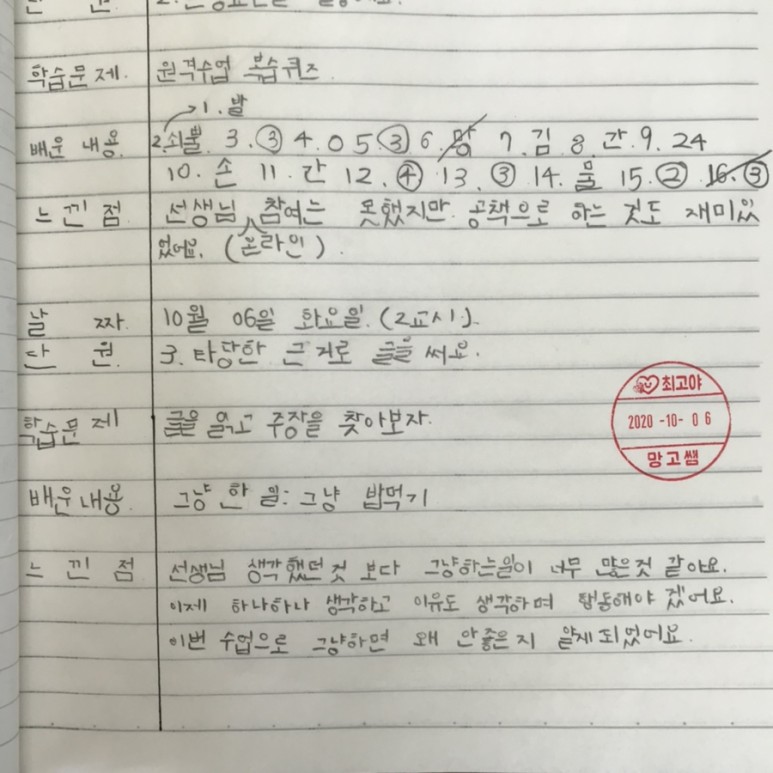 학습문제. 원격수업 복습퀴즈.
→1. 발
배운 내용. 2. 쇠뿔. 3. ③ 4. 0 5. ③ 6. 망 7. 김 8. 간. 9. 24
10. 손 11. 간 12. ④ 13. ③ 14. 물 15. ② 16. ③
느낀점 선생님 참여는 못했지만 공책으로 하는 것도 재미있
었어요. (온라인).
날 짜. 10월 06일 화요일. (2교시.)
단 원. 3. 타당한 근거로 글을 써요.
최고야
학습문제 글을 읽고 주장을 찾아보자.
2020-10-06
망고쌤
배운내용. 그냥 한 일: 그냥 밥먹기
느낀점 선생님 생각했던것 보다 그냥하는일이 너무 많은것 같아요.
이제 하나하나 생각하고 이유도 생각하며 행동해야 겠어요.
이번 수업으로 그냥하면 왜 안좋은지 알게되었어요.